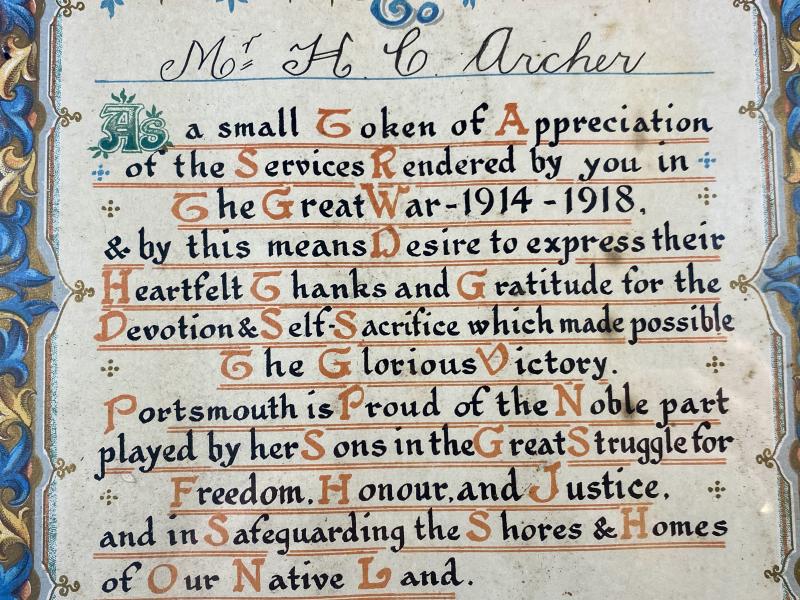 To
Mr H. C. Archer
As a small Token of Appreciation
of the Services Rendered by you in
The Great War - 1914 - 1918,
& by this means Desire to express their
Heartfelt Thanks and Gratitude for the
Devotion & Self-Sacrifice which made possible
The Glorious Victory.
Portsmouth is Proud of the Noble part
played by her Sons in the Great Struggle for
Freedom, Honour, and Justice,
and in Safeguarding the Shores & Homes
of Our Native Land.